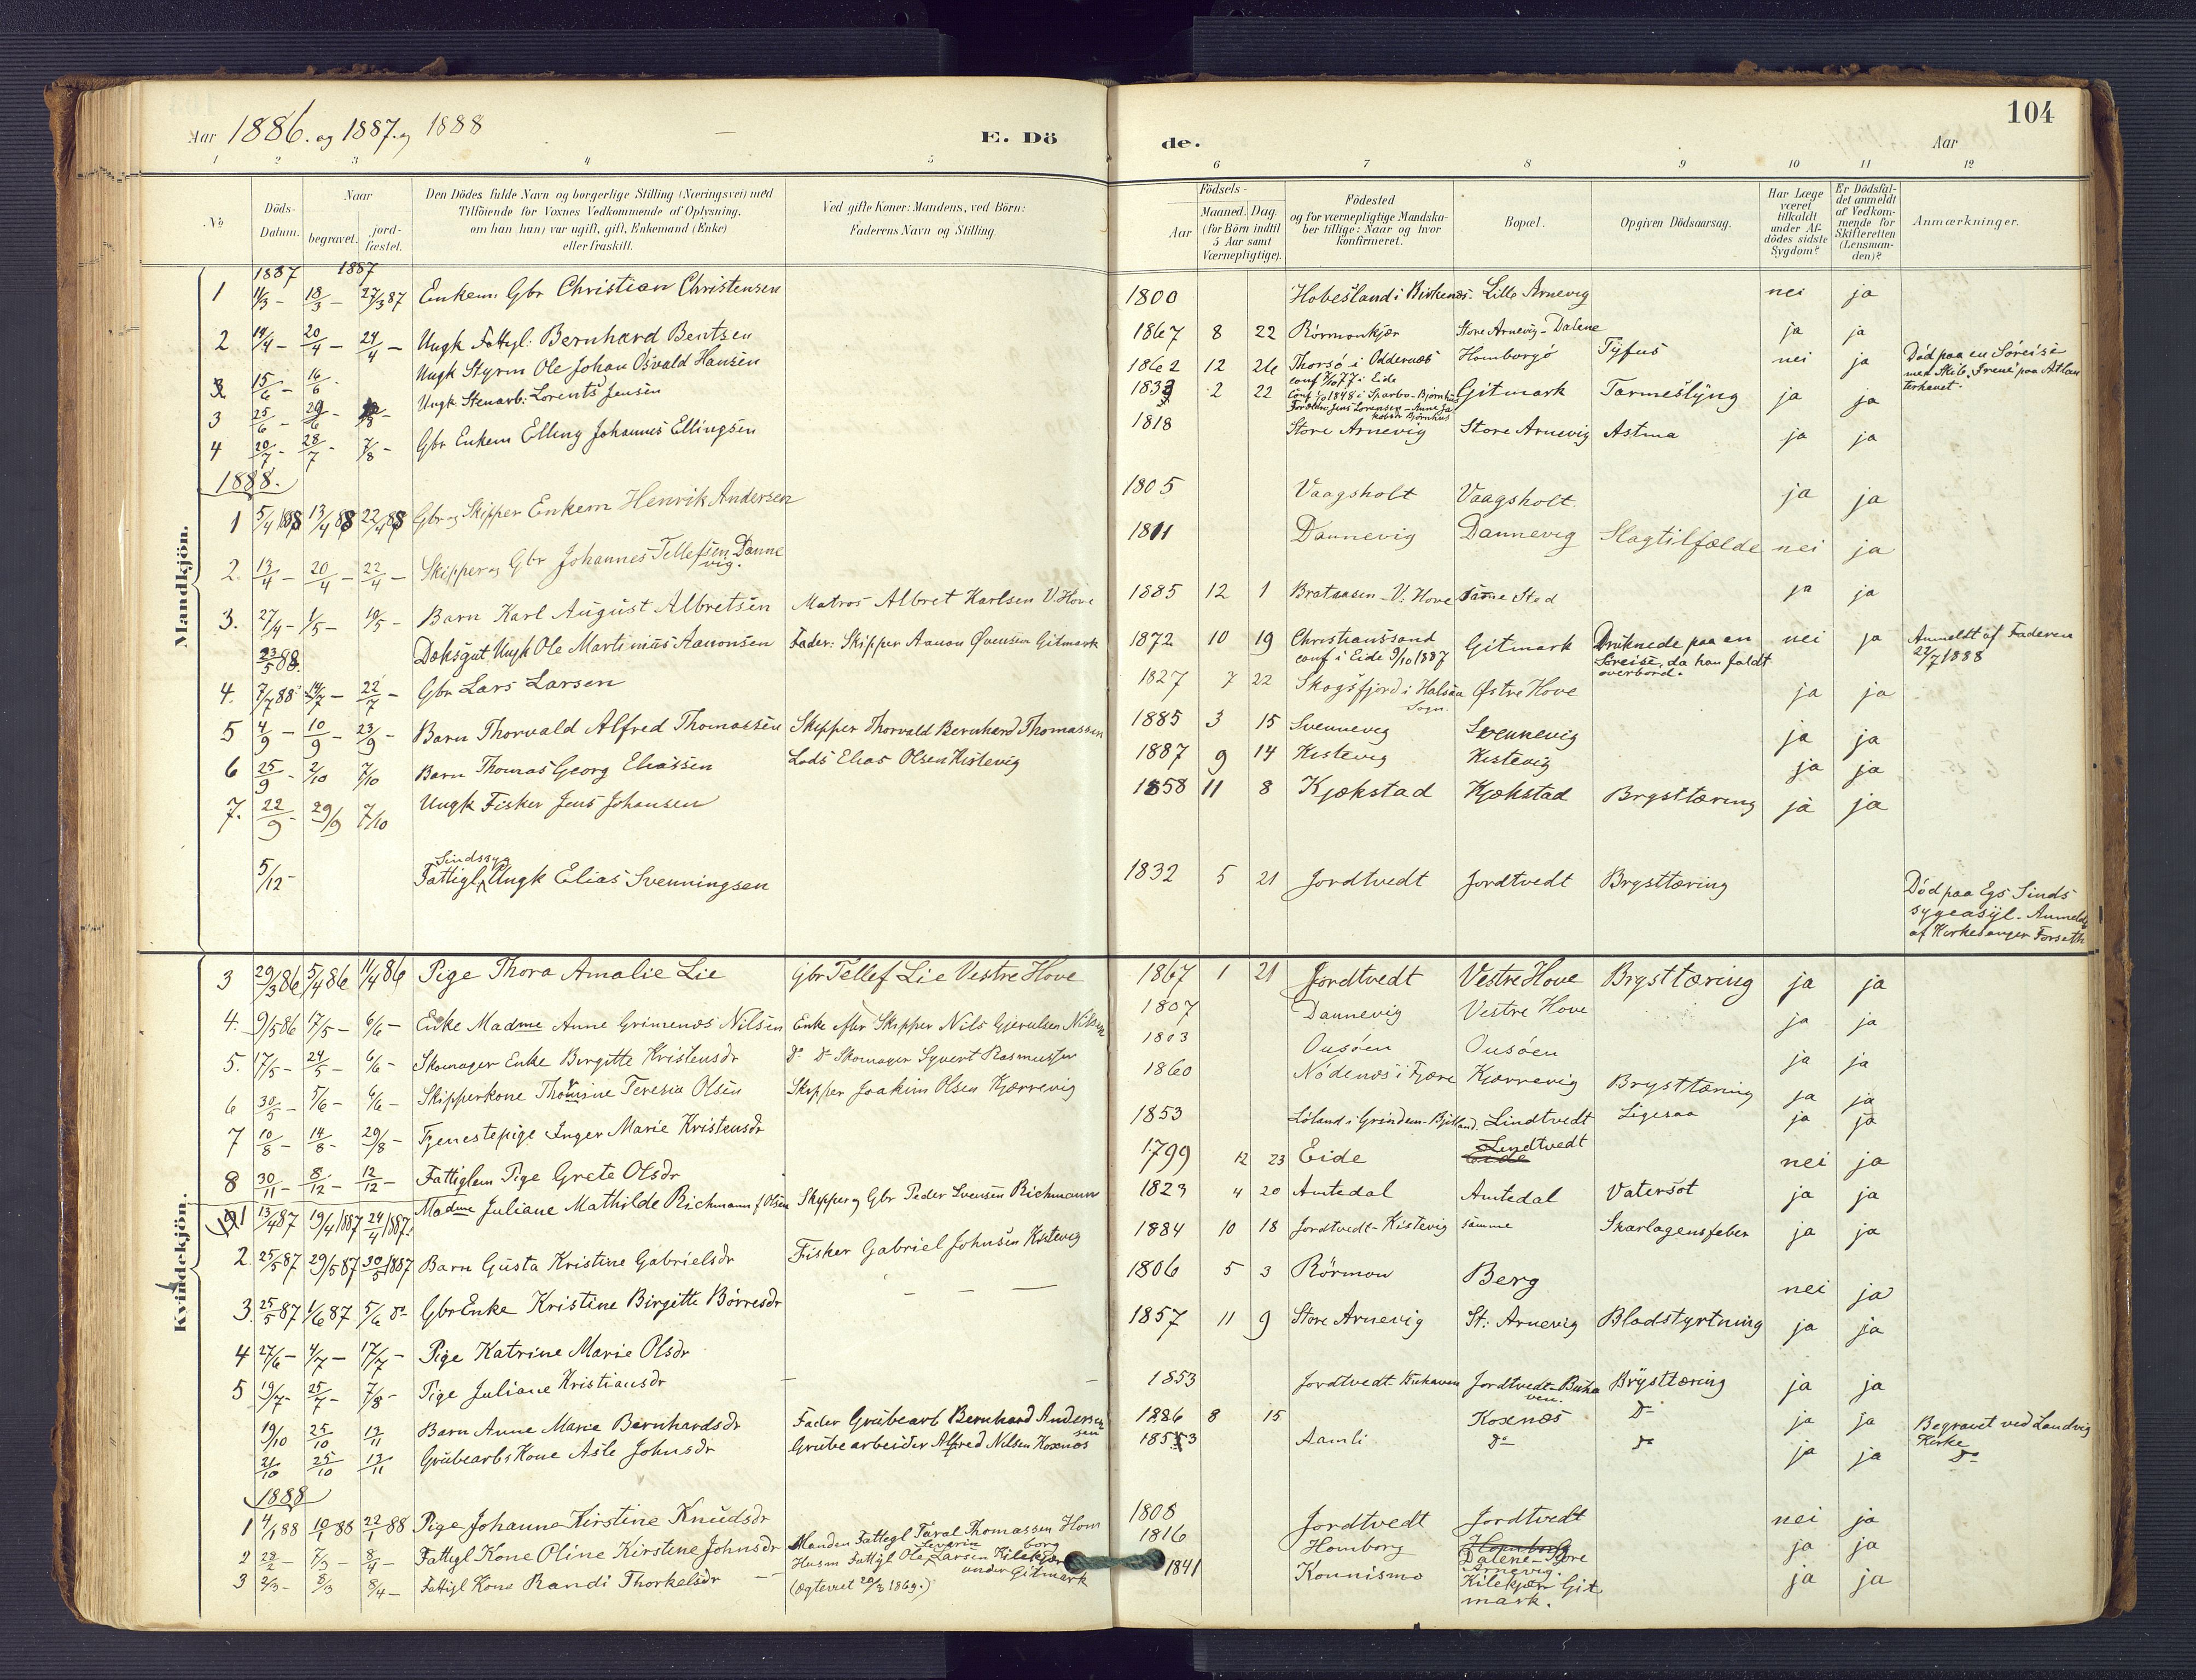 104
Aar 1886. og 1887. og 1888
E. Dö
de.
Aar
1 2 3 4 5 6 7 8 9 10 11 12
No
Döds-Datum.
Naar
begravet.
jord-fæstet.
Den Dödes fulde Navn og borgerlige Stilling (Næringsvei) med
Tilföiende for Voxnes Vedkommende af Oplysning,
om han (hun) var ugift, gift, Enkemand (Enke)
eller fraskilt.
Ved gifte Koner: Mandens, ved Börn:
Faderens Navn og Stilling
Födsels-
Aar
Maaned. Dag.
(for Börn indtil
5 Aar samt
Værnepligtige).
Födested
og for værnepligtige Mandska-
ber tillige: Naar og hvor
konfirmeret.
Bopæl.
Opgiven Dödsaarsag.
Har Læge
været
tilkaldt
under Af-
dödes sidste
Sygdom?
Er Dödsfal-
det anmeldt
af Vedkom-
mende for
Skifteretten
(Lensman-
den)?
Anmærkninger.
Mandkjön.
1887 1887
1 11/3 - 18/3 - 27/3 87 Enkem. Gbr Christian Christensen 1800 Hobesland i Birkenæs. Lille Arnevig nei ja
2 14/4 - 20/4 - 24/4 - Ungk Fattgl: Bernhard Bentsen 1867 8 22 Rörmonkjær Store Arnevig - Dalene ja ja
3 15/6 - 16/6 - Ungk Styrm Ole Johan Osvald Hansen 1862 12 26 Thorsö i Oddernæs conf 7/10 77 i Eide Homborgö Tyfus nei ja Död paa en Söreise med Skib. Irene paa Atlan terhavet.
3 25/6 - 29/6 - Ungk. Stenarb: Lorents Jensen 183 2 22 conf 1848 i Sparbo - Björnhus Forældre Jens Lorensen - Anne Ja kobsdr Björnhus Gitmark Tarmeslyng ja ja
4 20/7 - 28/7 - 7/8 - Gbr Enkem Elling Johannes Ellingsen 1818 Store Arnevig Store Arnevig Astma ja ja
1888.
1 5/4 1888 13/4 88 22/4 88 Gbr og Skipper Enkem Henrik Andersen 1805 Vaagsholt Vaagsholt. ja ja
2. 13/4 - 20/4 - 22/4 - Skipper og Gbr Johannes Tellefsen Danne vig. 1811 Dannevig Dannevig Slagtilfælde nei ja
3. 27/4 - 1/5 - 10/5 - Barn Karl August Albretsen Matros Albret Karlsen V. Hove 1885 12 1 Brataasen - V. Hove samme Sted ja ja
23/5 88. Dæksgut Ungk Ole Martinius Aanonsen Fader: Skipper Aanon Ovensen Gitmark 1872 10 19 Christianssand conf i Eide 9/10 1887 Gitmark Druknede paa en Söreise, da han faldt overbord. nei ja Anmeldt af Faderen 22/7 1888
4. 7/7 88 14/7 - 22/7 - Gbr Lars Larsen 1827 7 22 Skogsfjord i Halsaa Sogn. Østre Hove ja ja
5 4/9 - 10/9 - 23/9 - Barn Thorvald Alfred Thomassen Skipper Thorvald Bernhard Thomassen 1885 3 15 Svennevig Svennevig ja ja
6 25/9 - 2/10 7/10 Barn Thomas Georg Eliassen Lods Elias Olsen Kistevig 1887 9 14 Kistevig Kistevig ja ja
7. 22/9 - 29/9 7/10 Ungk Fisker Jens Johansen 1858 11 8 Kjækstad Kjækstad Brysttæring ja ja
5/12 - Sindssyg Fattigl. Ungk Elias Svenningsen 1832 5 21 Jordtvedt Jordtvedt Brysttæring Död paa Egs Sinds sygeasyl. Anmeldt af Kirkesanger Forseth
Kvindekjön.
3 29/3 86 5/4 86 11/4 86 Pige Thora Amalie Lie Gbr Tellef Lie Vestre Hove 1867 1 21 Jordtvedt Vestre Hove Brysttæring ja ja
4. 9/5 86 17/5 - 6/6 - Enke Madme Anne Grimenæs Nilsen Enke efter Skipper Nils Gjerulsen Nilsen 1807 Dannevig Vestre Hove ja ja
5. 17/5 - 24/5 - 6/6 - Skomager Enke Birgitte Kristensdr Do Do Skomager Syvert Rasmussen 1803 Ousöen Ousöen ja ja
6 30/5 - 5/6 - 6/6 - Skipperkone Thomine Teresia Olsen Skipper Joakim Olsen Kjærrevig 1860 Nödenæs i Fjære Kjærrevig Brysttæring ja ja
7 10/8 - 14/8 - 29/8 - Tjenestepige Inger Marie Kristensdr 1853 Löland i Grindem - Bjelland. Lindtvedt Ligesaa ja ja
8 30/11 - 8/12 - 12/12 - Fattiglem Pige Grete Olsdr 1799 12 23 Eide Eide Lindtvedt nei ja
1 13/4 87 19/4 1887 24/4 1887. Madme Juliane Mathilde Richmann f Olsen Skipper og Gbr Peder Svensen Richmann 1823 4 20 Amtedal Amtedal Vatersot ja ja
2. 25/5 87 29/5 87 30/5 1887 Barn Gusta Kristine Gabrielsdr Fisker Gabriel Johnsen Kistevig 1884 10 18 Jordtvedt - Kistevig samme Skarlagensfeber ja ja
3. 25/5 87 1/6 87 5/6 do Gbr Enke Kristine Birgitte Börresdr 1806 5 3 Rörmon Berg nei ja
4 27/6 - 4/7 - 17/7 - Pige Katrine Marie Olsdr 1857 11 9 Store Arnevig St: Arnevig Blodstyrtning ja ja
5 19/7 - 25/7 - 7/8 - Pige Juliane Kristiansdr 1853 Jordtvedt - Buhaven Jordtvedt - Buha ven. Brysttæring ja ja
19/10 25/10 13/11 Barn Anne Marie Bernhardsdr Fader Grubearb Bernhard Andersen 1886 8 15 Koxnæs Do ja ja Begravet ved Landvig Kirke
21/10 25/10 13/11 Grubearb. Kone Asle Johnsdr Grubearbeider Alfred Nilsen Koxnæs 1853 Aamli Do Do ja ja Do
1888
1 4/1 88 10/1 88 22/1 88 Pige Johanne Kirstine Knudsdr 1808 Jordtvedt Jordtvedt nei ja
2 28/2 - 7/3 - 8/4 - Fattigl Kone Oline Kirstine Johnsdr Manden Fattigl Taral Thomassen Hom borg 1816 Homborg Homborg Dalene - Store Arnevig. ja ja
3 2/3 - 8/3 8/4 - Fattigl Kone Randi Thorkelsdr Husm Fattigl Ole Severin Larsen Kilekjær under Gitmark (Ægteviet 20/3 1869.) 1841 Konnismo Kilekjær Git mark. ja ja